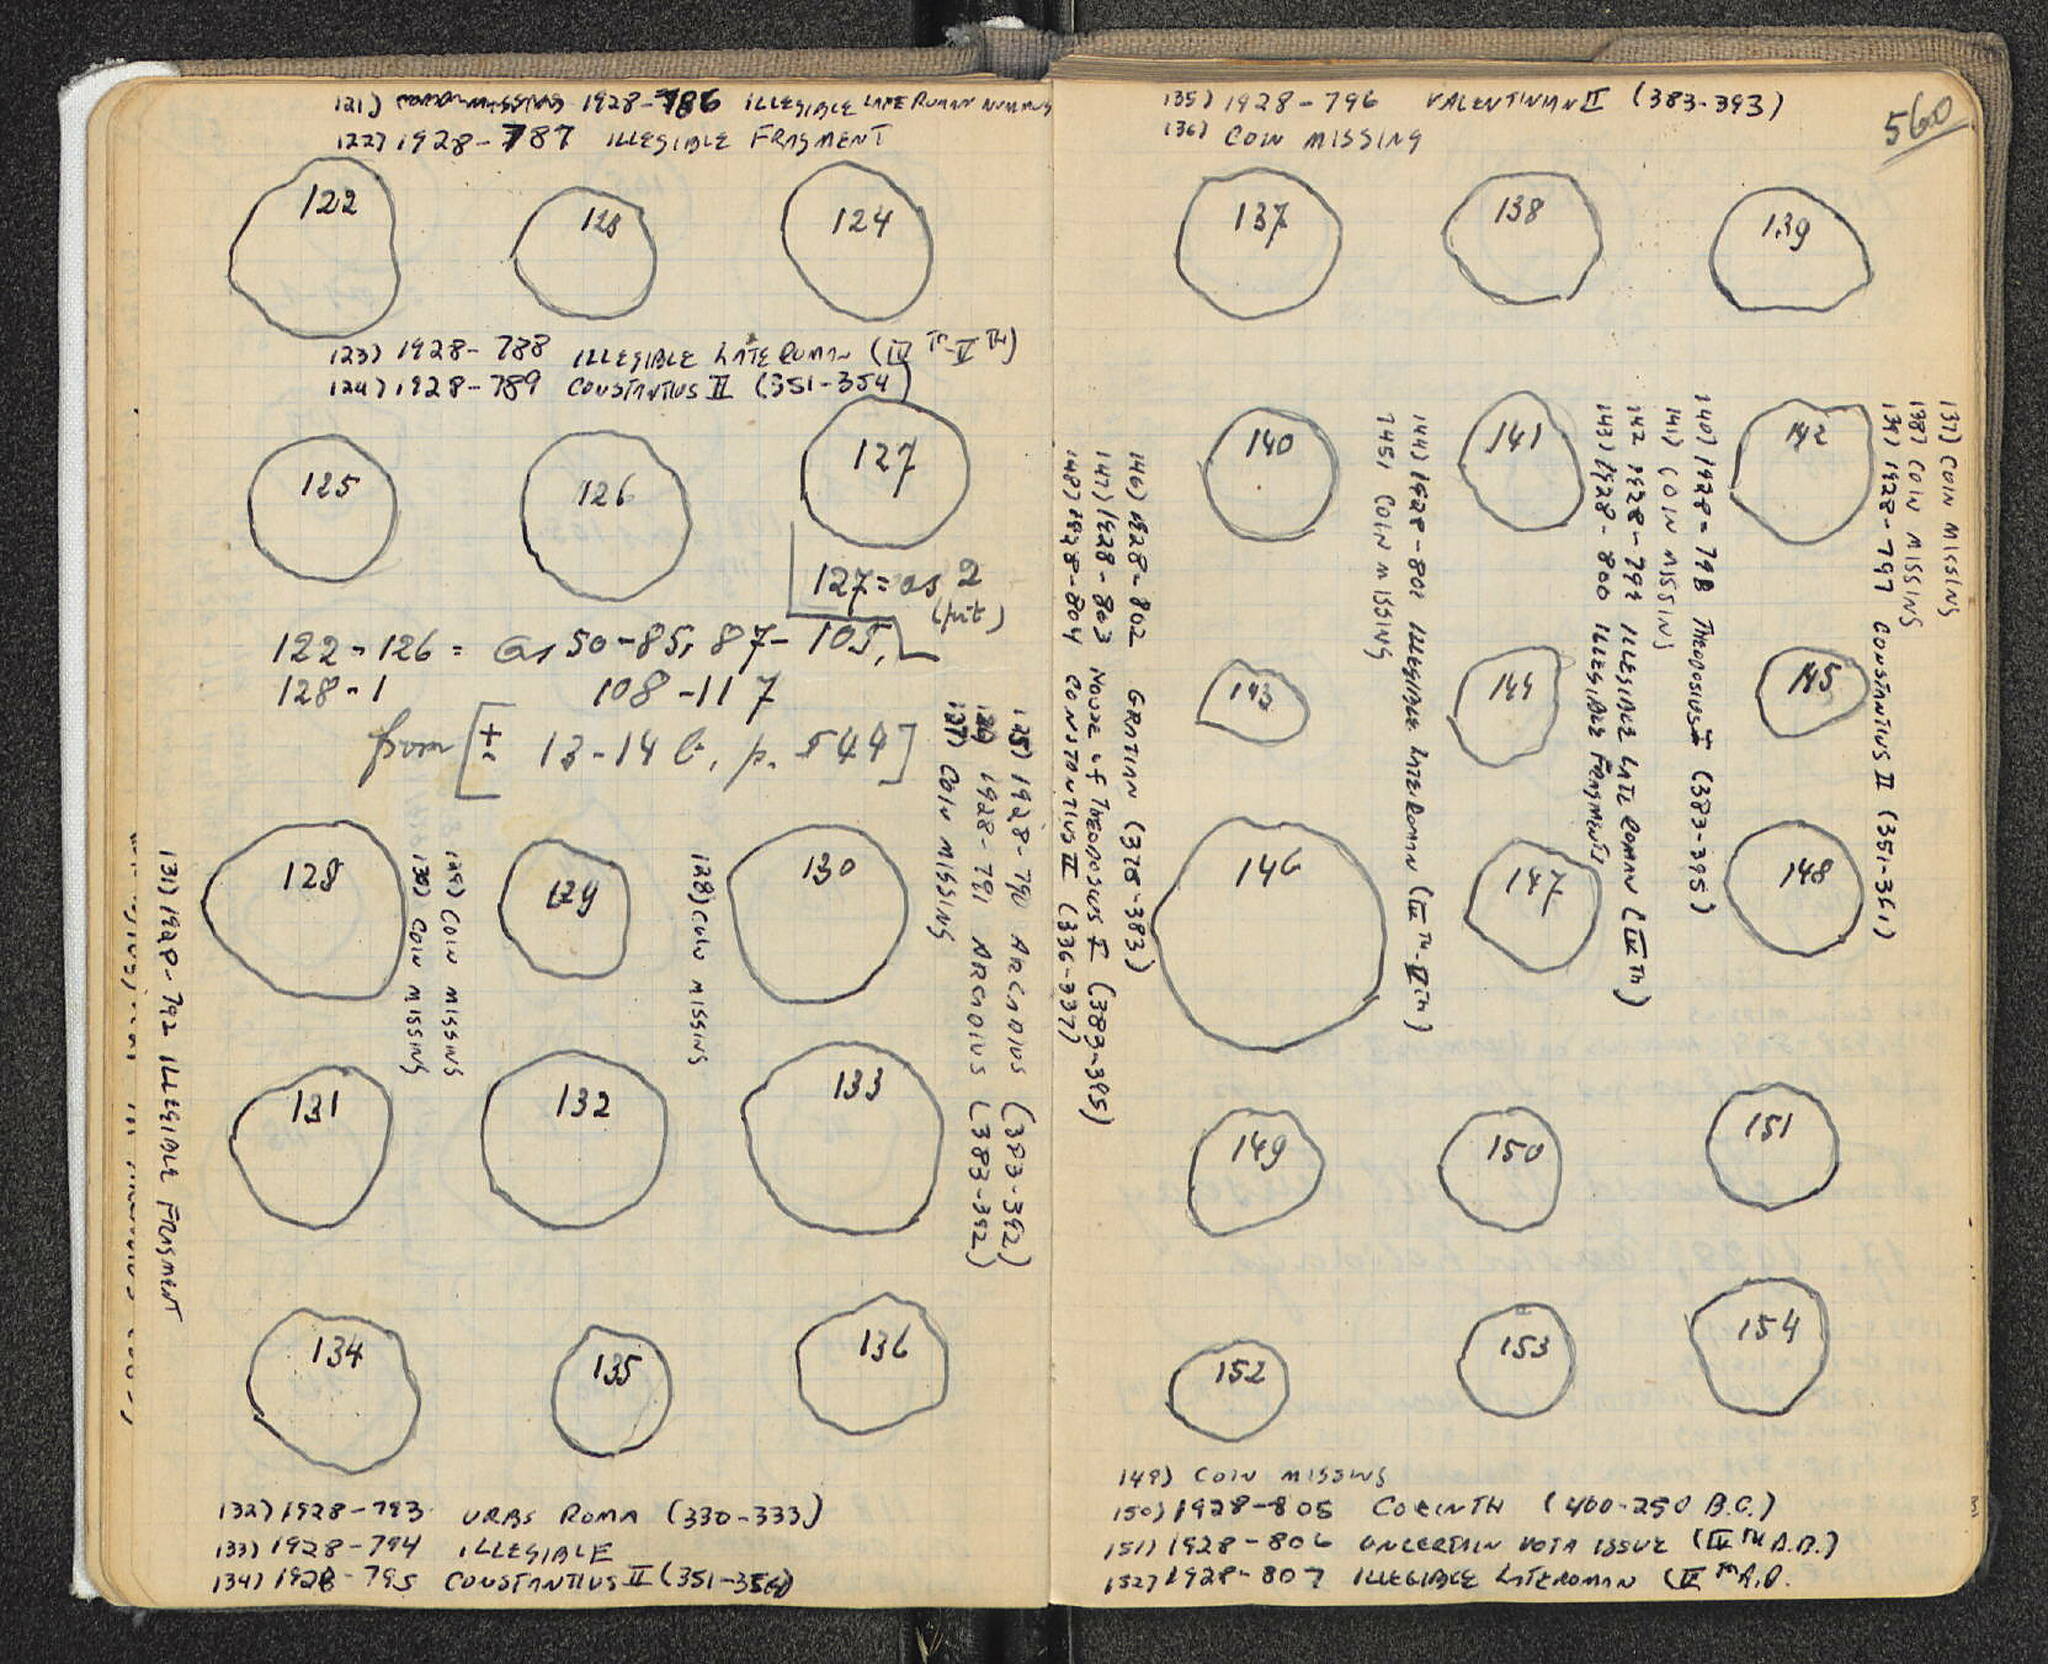 121) 1928-786 ILLEGIBLE LATE ROMAN NUMMUS
122) 1928-787 ILLEGIBLE FRAGMENT
122
123
124
123) 1928-788 ILLEGIBLE LATE ROMAN (IV TH-V TH)
124) 1928-789 CONSTANTIUS II (351-354)
125
126
127
127 = as 2
(pit)
122-126 = as 50-85, 87-105,
128-1 108-117
from [± 13-14 b, p. 544]
125) 1928-790 ARCADIUS (383-392)
126) 1928-791 ARCADIUS (383-392)
127) COIN MISSING
128
129
130
128) COIN MISSING
129) COIN MISSING
130) COIN MISSING
131) 1928-792 ILLEGIBLE FRAGMENT
131
132
133
134
135
136
132) 1928-793 URBS ROMA (330-333)
133) 1928-794 ILLEGIBLE
134) 1928-795 CONSTANTIUS II (351-356)
135) 1928-796 VALENTINIAN II (383-393)
136) COIN MISSING
560
137
138
139
137) COIN MISSING
138) COIN MISSING
139) 1928-797 CONSTANTIUS II (351-361)
140
141
142
140) 1928-798 THEODOSIUS I (383-395)
141) COIN MISSING
142 1928-799 ILLEGIBLE LATE ROMAN (IV TH)
143) 1928-800 ILLEGIBLE FRAGMENTS
144) 1928-801 ILLEGIBLE LATE ROMAN (IV TH-V TH)
145) COIN MISSING
143
144
145
146) 1928-802 GRATIAN (378-383)
147) 1928-803 HOUSE OF THEODOSIUS I (383-395)
148) 1928-804 CONSTANTIUS II (336-337)
146
147
148
149
150
151
152
153
154
149) COIN MISSING
150) 1928-805 CORINTH (400-250 B.C.)
151) 1928-806 UNCERTAIN VOTA ISSUE (IV TH A.D.)
152) 1928-807 ILLEGIBLE LATE ROMAN (IV TH A.D.